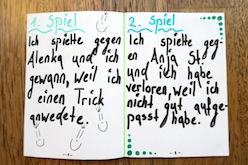 1. Spiel
Ich spielte gegen
Alenka und ich
gewann, weil ich
einen Trick
anwedete.
2. Spiel
Ich spielte geg-
en Anja St.
und ich habe
verloren, weil ich
nicht gut aufge-
passt habe.